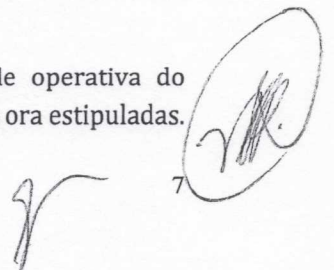 le operativa do
ora estipuladas.
7